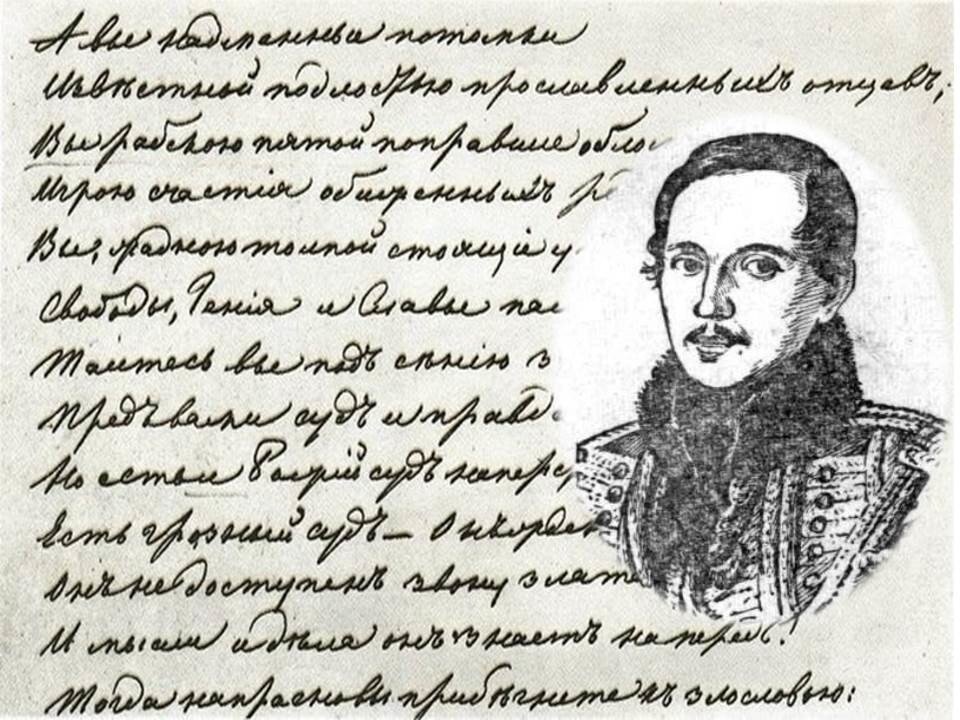 А вы надменные потомки
Извѣстной подлостью прославленныхъ отцовъ,
Вы рабскою пятой поправшие обло
Игрою счастія обиженныхъ р
Вы, жадною толпой стоящіе у
Свободы, Генія и Славы па
Таитесь вы подъ сѣнію з
Предъ вами судъ и правда
Но есть и Божій судъ наперс
Есть грозный судъ — Онъ жде
Онъ не доступенъ звону злат
И мысли и дѣла онъ знаетъ напередъ!
Тогда напрасно вы прибѣгнете къ злословью: